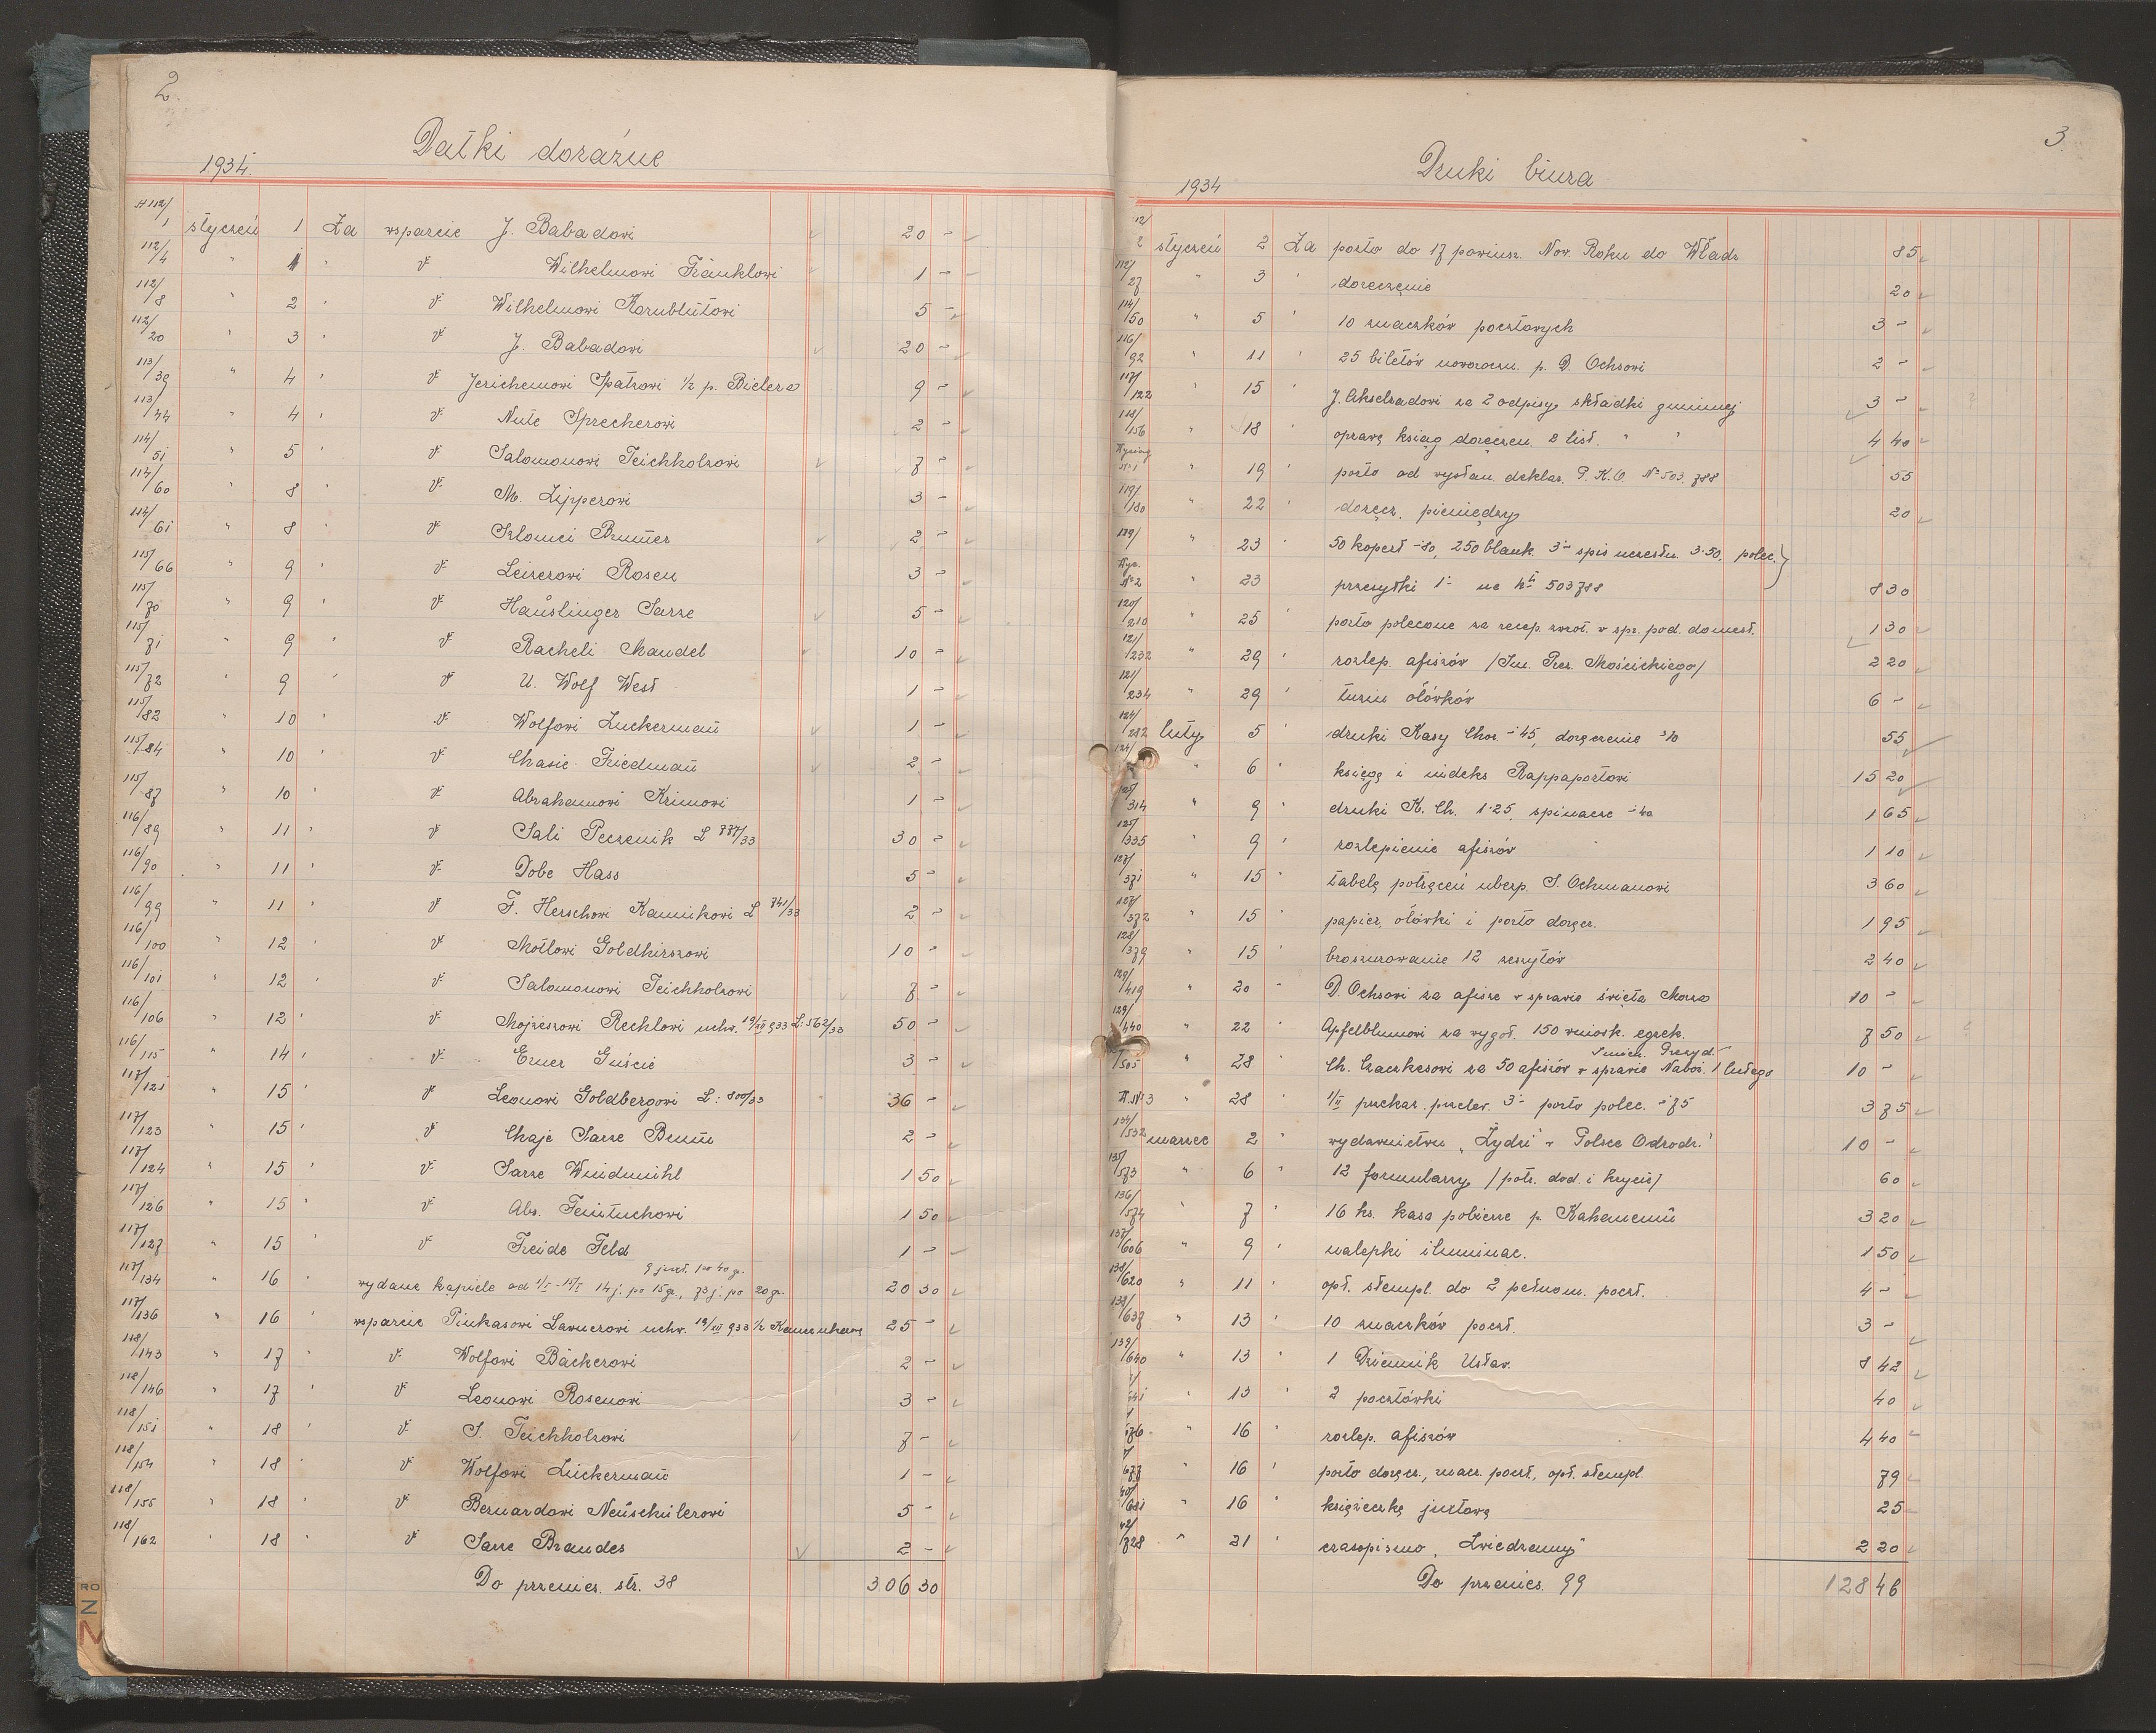 2.
Datki doraźne
1934.
112/1 styczeń 1 Za wsparcie J. Babadowi 20 -
112/4 " 1 " " Wilhelmowi Fränklowi 1 -
112/8 " 2 " " Wilhelmowi Kornblütowi 5 -
112/20 " 3 " " J. Babadowi 20 -
113/39 " 4 " " Jerichemowi Spatzowi ½ p. Bielera 9 -
113/44 " 4 " " Nute Sprecherowi 2 -
114/51 " 5 " " Salomonowi Teichholzowi 7 -
114/60 " 8 " " M. Lipperowi 3 -
114/61 " 8 " " Szlomci Brunner 2 -
115/66 " 9 " " Leizerowi Rosen 3 -
115/70 " 9 " " Haüslinger Sarze 5 -
115/71 " 9 " " Racheli Mandel 10 -
115/72 " 9 " " U. Wolf West 1 -
115/82 " 10 " " Wolfowi Zuckermañ 1 -
115/84 " 10 " " Chasie Friedmañ 2 -
115/87 " 10 " " Abrahamowi Krimowi 1 -
116/89 " 11 " " Sali Peczenik L 787/33 30 -
116/90 " 11 " " Dobe Hass 5 -
116/99 " 11 " " F. Herschowi Kaminkowi L 741/33 2 -
116/100 " 12 " " Motlowi Goldhirszowi 10 -
116/101 " 12 " " Salomonowi Teichholzowi 7 -
116/106 " 12 " " Mojżeszowi Rechlowi uchw. 19/XII 933 L: 562/33 50 -
116/115 " 14 " " Erner Guście 3 -
117/121 " 15 " " Leonowi Goldbergowi L: 800/33 36 -
117/123 " 15 " " Chaje Sarze Bruñ 2 -
117/124 " 15 " " Sarze Windmihl 1 50
117/126 " 15 " " Abr. Feintuchowi 1 50
117/127 " 15 " " Freide Feld 1 -
117/134 " 16 " wydane kąpiele od 1/I-15/I 14 j. po 15 gr., 73 j. po 20 gr. 20 30
117/136 " 16 " wsparcie Pinkasowi Lawnerowi uchw. 19/XII 933 ½ 25 -
118/143 " 17 " " Wolfowi Bäckerowi 2 -
118/146 " 17 " " Leonowi Rosenowi 3 -
118/151 " 18 " " S. Teichholzowi 7 -
118/154 " 18 " " Wolfowi Zückermañ 1 -
118/155 " 18 " " Bernardowi Neüschülerowi 5 -
118/162 " 18 " " Sarze Brandes 2 -
Do przenies. str. 38 306 30
3.
Druki biura
1934
styczeń 2 Za porto do 17 powinsz. Now. Roku do Władz 85
112/27 " 3 " doręczenie 20
114/50 " 5 " 10 znaczków pocztowych 3 -
116/92 " 11 " 25 biletów noworoczn. p. D. Ochsowi 2 -
117/122 " 15 J. Akselradowi za 2 odpisy składki gminnej 3 -
118/156 " 18 " oprawę ksiąg doręczeń 2 list. " " 4 40
" 19 " porto od wysłan. deklar. P.K.O. № 503.788 55
119/180 " 22 " doręcz. pieniędzy 20
" 23 " 50 kopert -80, 250 blank. 3- spis uczestn. 3·50, polec.
№ 2 " 23 przesyłki 1- 503788 8 30
120/210 " 25 " porto polecone za recep. zwrot. w spr. pod. domest. 1 30
121/232 " 29 " rozlep. afiszów /Im. Prez. Mościckiego/ 2 20
121/234 " 29 " tuzin ołówków 6 -
124/282 luty 5 " druki Kasy Chor. -45, doręczenie -10 55
" 6 " księgę i indeks Rappaportowi 15 20
314 " 9 " druki K. Ch. 1·25, spinacze -40 1 65
125/335 " 9 " rozlepienie afiszów 1 10
127/371 " 15 " tabelę potrąceń ubezp. S. Ochmanowi 3 60
127/372 " 15 " papier, ołówki i porto doręcz. 1 95
128/379 " 15 " broszurowanie 12 zeszytów 2 40
129/419 " 20 " D. Ochsowi za afisze w sprawie święta Morza 10 -
129/440 " 22 " Apfelblumowi za wygot. 150 wniosk. egzek. 7 50
505 " 28 " Ch. Czaczkesowi za 50 afiszów w sprawie Naboż. Imien. Prezyd. 1 lutego 10 -
№ 3 " 28 " 3- porto polec. -75 3 75
134/532 marzec 2 " wydawnictwu „Żydzi" w Polsce Odrodz." 10 -
135/573 " 6 " 12 formularzy /potr. dod. i kryzis/ 60
136/574 " 7 " 16 ks. kasa pobierze p. Kahanemu 3 20
137/606 " 9 " nalepki iluminac. 1 50
138/620 " 11 " opł. stempl. do 2 pełnom. poczt. 4 -
139/637 " 13 " 10 znaczków poczt. 3 -
139/640 " 13 " 1 Dziennik Ustaw. 8 42
" 13 " 2 pocztówki 40
" 16 " rozlep. afiszów 4 40
677 " 16 " porto doręcz., znacz. poczt., opł. stempl. 79
" 16 " książeczkę juxtową 25
728 " 21 " czasopismo „ 2 20
Do przenies. 99 128 46